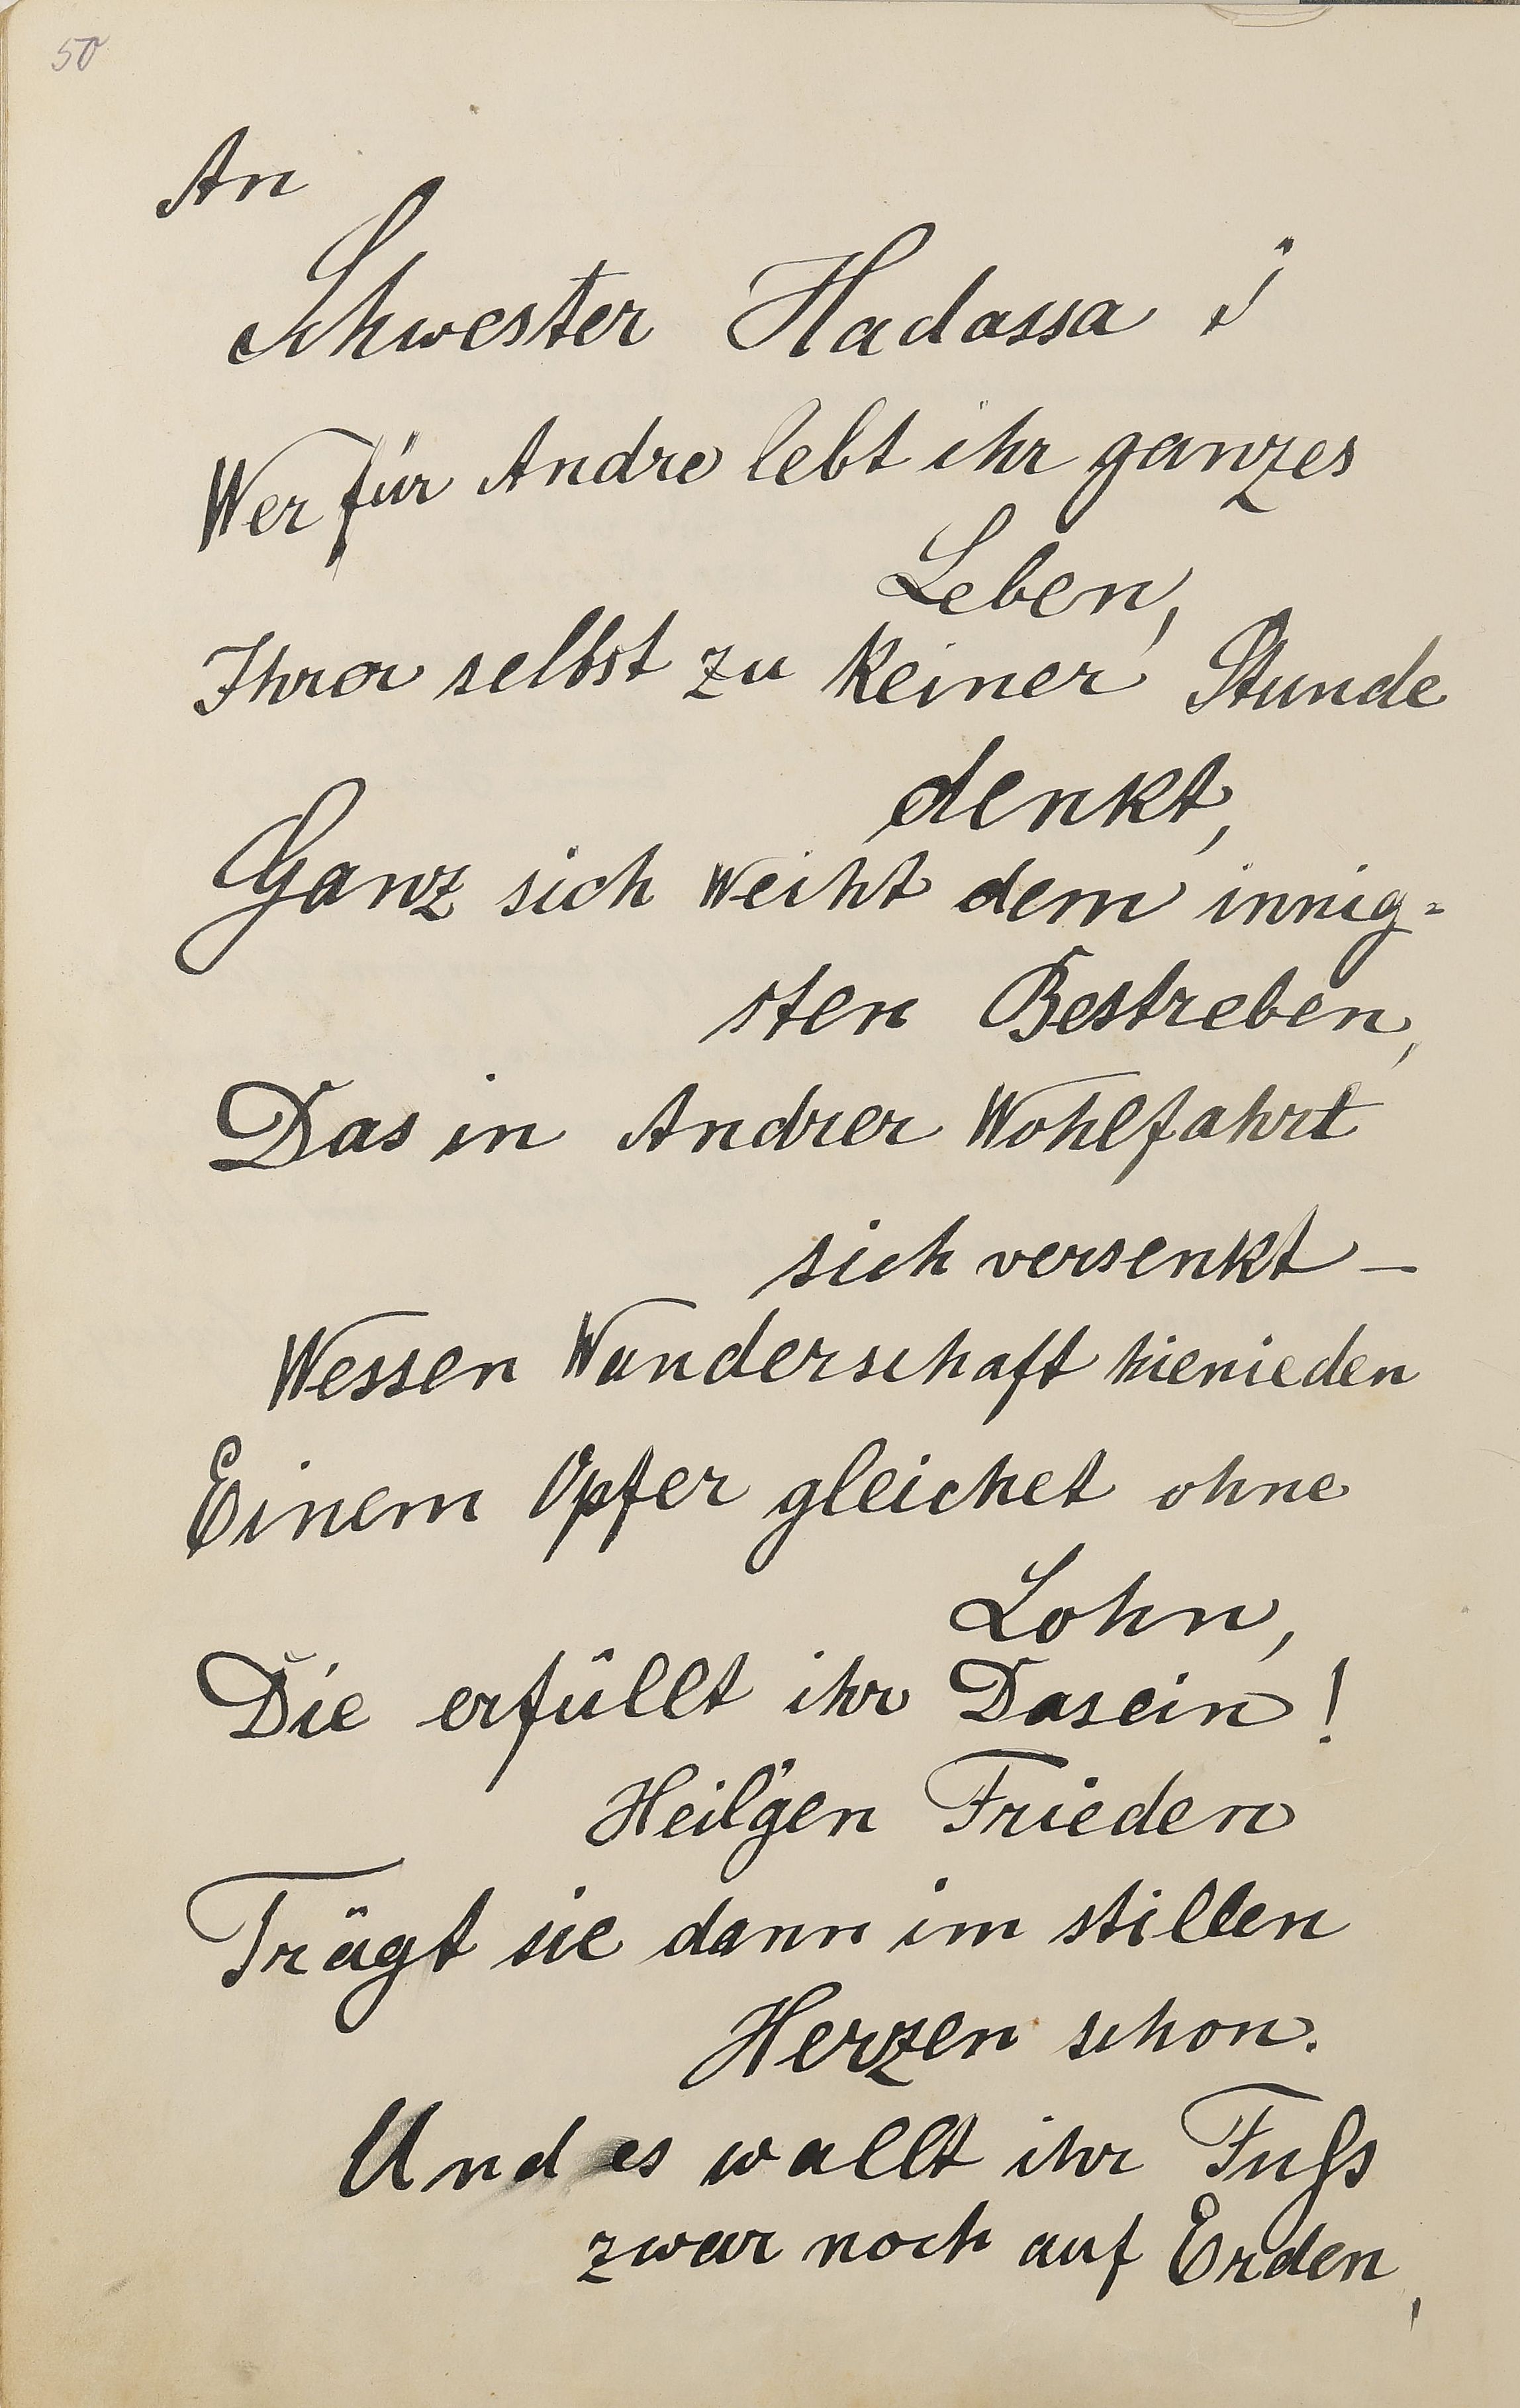 50
An
Schwester Hadassa
Wer für Andre lebt ihr ganzes
Leben,
Ihrer selbst zu keiner Stunde
denkt,
Ganz sich weiht dem innig-
sten Bestreben,
Das in Andrer Wohlfahrt
sich versenkt –
Wessen Wanderschaft hienieden
Einem Opfer gleichet ohne
Lohn,
Die erfüllt ihr Dasein!
Heil'gen Frieden
Trägt sie dann im stillen
Herzen schon.
Und es wallt ihr Fuß
zwar noch auf Erden,